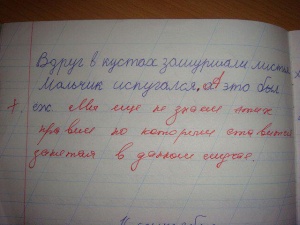 Вдруг в кустах зашуршали листья
Мальчик испугался, а это был
ёж. Мы еще не знаем этих
правил по которым ставится
запятая в данном случае.